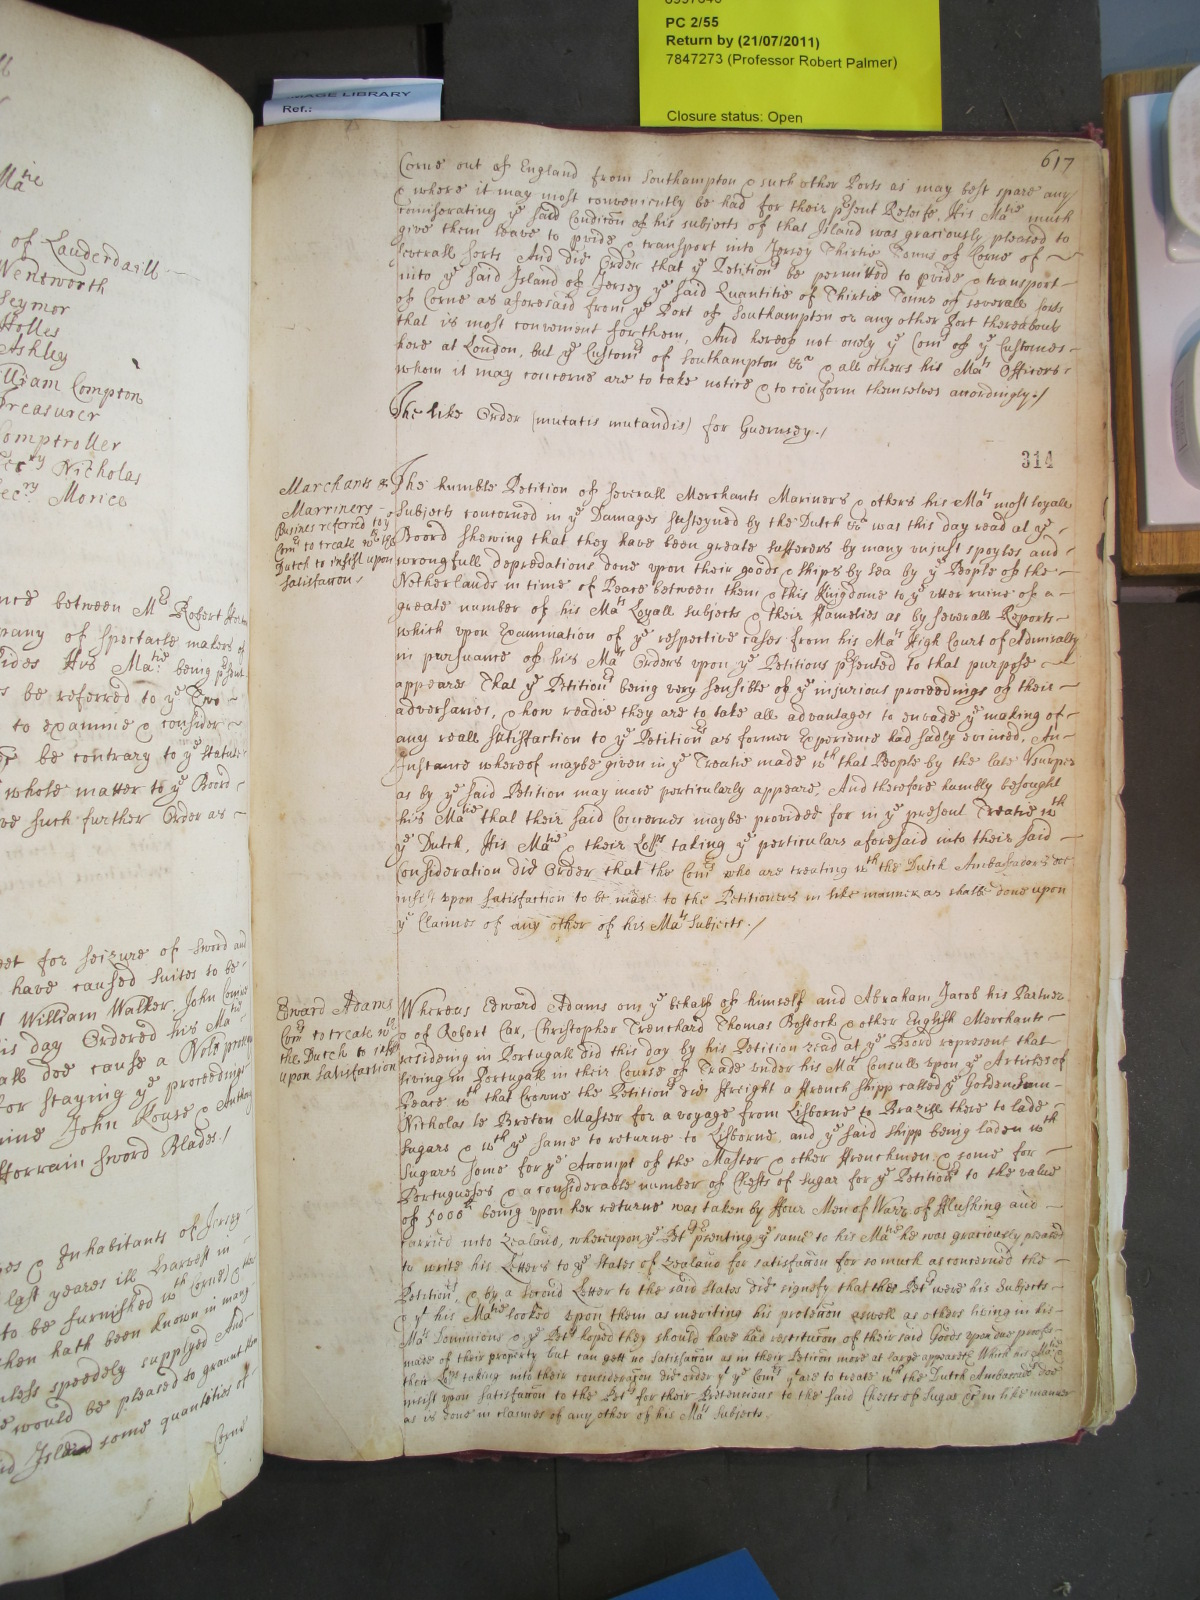 PC 2/55
Return by (21/07/2011)
7847273 (Professor Robert Palmer)
Closure status: Open
IMAGE LIBRARY
Ref.:
Matie
of Lauderdaill
Wentworth
Seymor
Holles
Ashley
William Compton
Treasurer
Comptroller
Secry Nicholas
Secry Morice
between Mr Robert
of Spectacle makers of
His Matie being psent
be referred to ye Two
to examine & consider
be contrary to ye Statute
whole matter to ye Boord
such further Order as
for seizure of sword and
have caused suites to be
William Walker John
is day Ordered his Mats
doe cause a Noli
for staying ye proceedings
John Rouse & Anthony
Sword Blades /
& Inhabitants of Jersey
last yeares ill harvest in
to be furnished wth Corne &
hath been known in many
unless speedely supplyed And
would be pleased to graunt them
Island some quantities of
Corne
617
Corne out of England from Southampton & such other Ports as may best spare any
& where it may most conveniently be had for their psent Releife, His Matie much
comiserating ye said Condicon of his subjects of that Island was graciously pleased to
give them leave to pvide & transport into Jersey Thirtie Tonns of Corne of
severall sorts And did Order that ye Petitionrs be permitted to pvide & transport
into ye said Island of Jersey ye said Quantitie of Thirtie Tonns of severall sorts
of Corne as aforesaid from ye Port of Southampton or any other Port thereabouts
that is most convenient for them, And hereof not onely ye Comrs of ye Customes
here at London, but ye Customrs of Southampton &ca & all others his Mats Officers
whom it may concerne are to take notice & to conform themselves accordingly /
The like Order (mutatis mutandis) for Guernsey. /
314
Marchants &
Marriners
Busines referred to ye
Comrs to treate wth the
Dutch to insist upon
satisfaccon /
The humble Petition of severall Merchants Mariners & others his Mats most loyall
Subjects concerned in ye Damages susteyned by the Dutch &ca was this day read at ye
Boord shewing that they have been greate sufferers by many unjust spoyles and
wrongfull depredations done upon their goods & ships by Sea by ye People of the
Netherlands in time of Peace between them & this Kingdome to ye utter ruine of a
greate number of his Mats Loyall subjects & their Families as by severall Reports
which upon Examination of ye respective cases from his Mats High Court of Admiralty
in pursuance of his Mats Orders upon ye Petitions psented to that purpose
appeares That ye Petitionrs being very sensible of ye injurious proceedings of their
adversaries, & how readie they are to take all advantages to envade ye making of
any reall satisfaction to ye Petitionrs as former Experience had sadly evinced, An
Instance whereof maybe given in ye Treatie made wth that People by the late Usurper
as by ye said Petition may more perticularly appeare, And therefore humbly besought
his Matie that their said Concernes maybe provided for in ye present Treatie wth
ye Dutch, His Matie & their Lopps taking ye particulars aforesaid into their said
Consideration did Order that the Comrs who are treating wth the Dutch Ambassadors doe
insist upon Satisfaction to be made to the Petitioners in like manner as shalbe done upon
ye Claimes of any other of his Mats Subjects. /
Edward Adams
Comrs to treate wth
the Dutch to insist
upon satisfaction
Whereas Edward Adams on ye behalf of himself and Abraham Jacob his Partner
& of Robert Car, Christopher Trenchard Thomas Bostock & other English Merchants
residing in Portugall did this day by his Petition read at ye Boord represent that
living in Portugall in their Course of Trade under his Mats Consull upon ye Articles of
Peace wth that Crowne the Petitionrs did freight a French shipp called ye Golden Sunn
Nicholas le Breton Master for a voyage from Lisborne to Brazill there to lade
Sugars & wth ye same to returne to Lisborne, and ye said shipp being laden wth
Sugars some for ye Accompt of the Master & other Frenchmen & some for
Portugueses & a considerable number of Chests of Sugar for ye Petitionrs to the value
of 5000li being upon her returne was taken by Four Men of Warr of Flushing and
carried into Zealand, whereupon ye Petrs psenting ye same to his Matie he was graciously pleased
to write his Letters to ye States of Zealand for satisfaccon for so much as concerned the
Petitionrs, & by a second Letter to the said States did signefy that the Petrs were his Subjects
& yt his Matie looked upon them as meriting his proteccon aswell as others living in his
Mats Dominions & ye Petrs hoped they should have had restitucon of their said Goods upon due proofes
made of their property but can gett no satisfaccon as in their Peticon more at large appeareth Which his Matie &
their Lopps taking into their consideracon did order yt ye Comrs yt are to treate wth the Dutch Ambassadrs doe
insist upon satisfaccon to the Petrs for their Pretensions to the said Chests of Sugar in like manner
as is done in claimes of any other of his Mats Subjects.